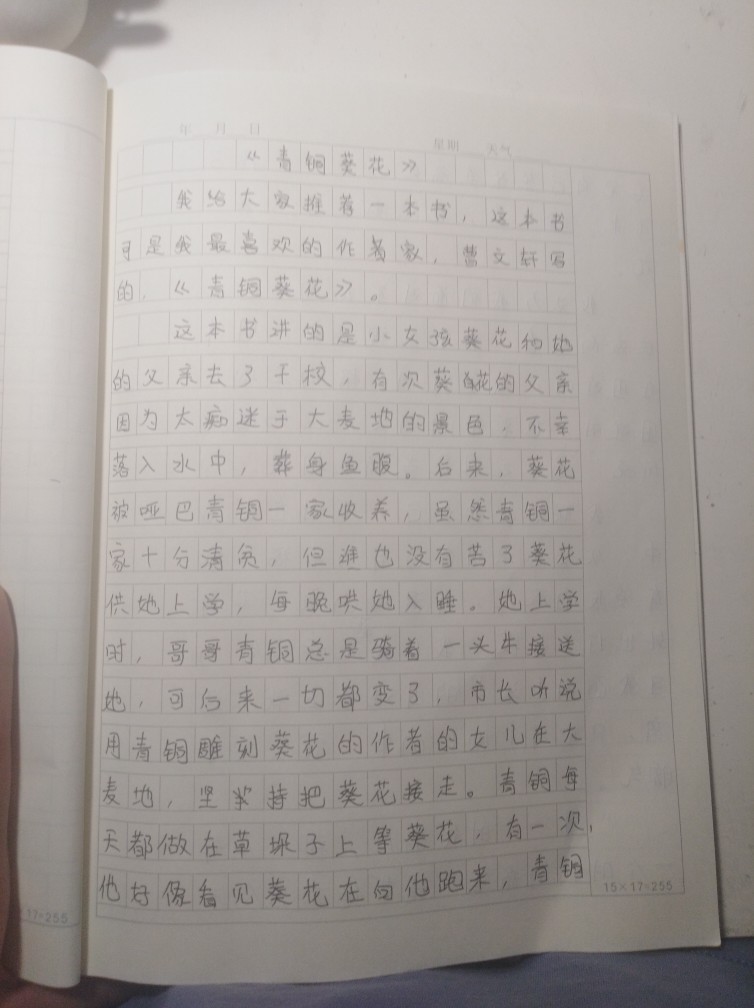 年 月 日
星期 天气
《青铜葵花》
我给大家推荐一本书，这本书
可是我最喜欢的作者家，曹文轩写
的，《青铜葵花》。
这本书讲的是小女孩葵花和她
的父亲去了干校，有次葵花的父亲
因为太痴迷于大麦地的景色，不幸
落入水中，葬身鱼腹。后来，葵花
被哑巴青铜一家收养，虽然青铜一
家十分清贫，但谁也没有苦了葵花
供她上学，每晚哄她入睡。她上学
时，哥哥青铜总是骑着一头牛接送
她，可后来一切都变了，市长听说
用青铜雕刻葵花的作者的女儿在大
麦地，坚持把葵花接走。青铜每
天都做在草垛子上等葵花，有一次，
他好像看见葵花在向他跑来，青铜
15×17=255
×17=255